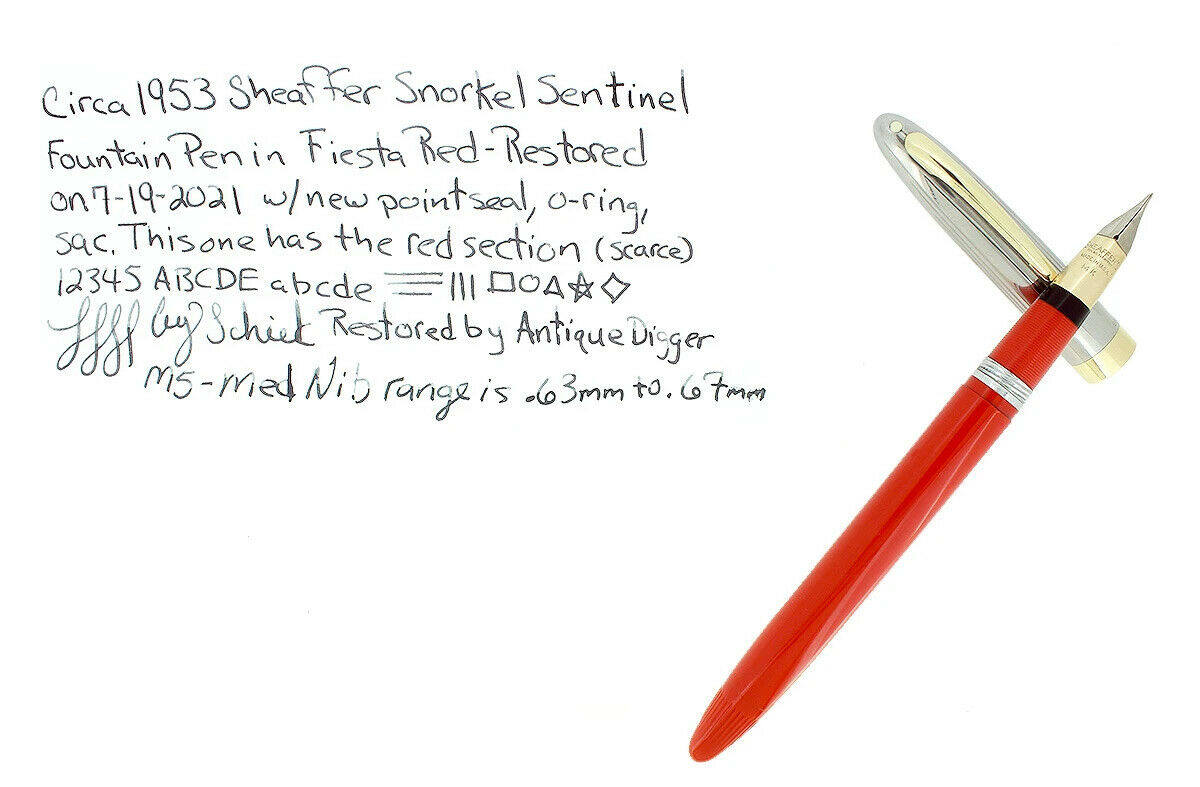 Circa 1953 Sheaffer Snorkel Sentinel
Fountain Pen in Fiesta Red-Restored
on 7-19-2021 w/new point seal, o-ring,
sac. This one has the red section (scarce)
12345 ABCDE abcde
Restored by Antique Digger
M5-Med Nib range is .63mm to .67mm
SHEAFFER'S
14K